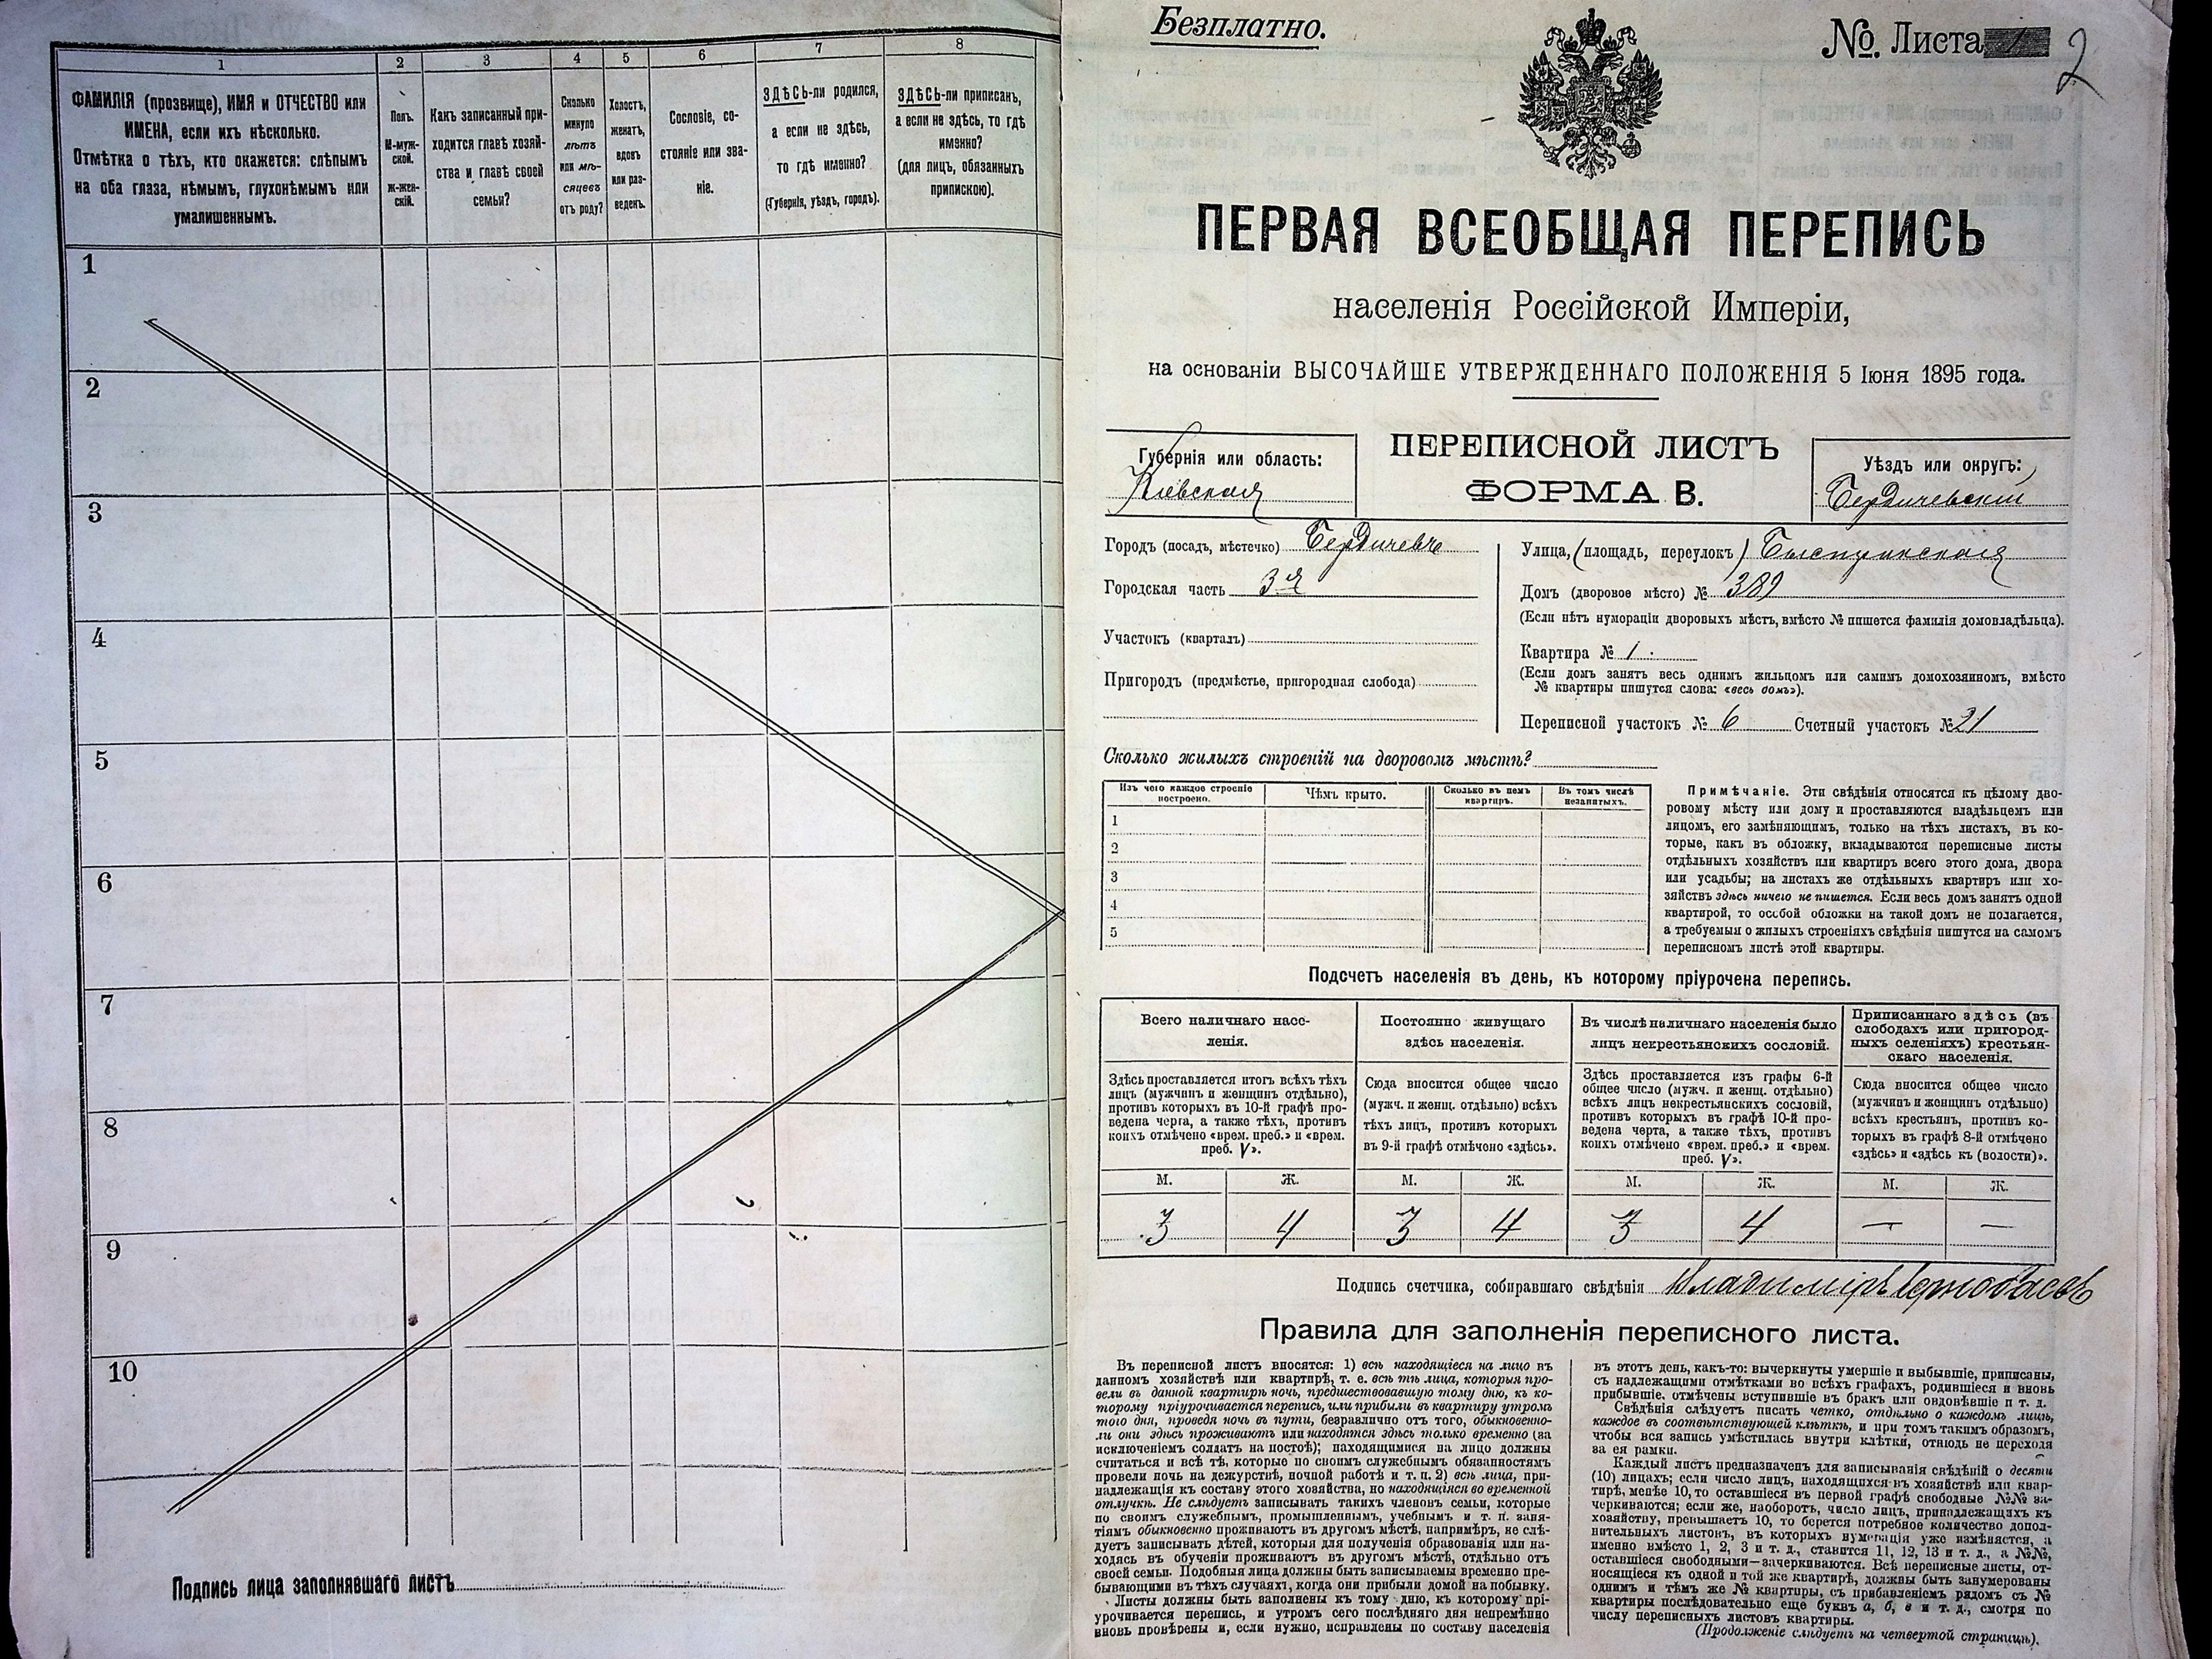 1
2
3
4
5
6
7
8
ФАМИЛІЯ (прозвище), ИМЯ и ОТЧЕСТВО или
ИМЕНА, если ихъ нѣсколько.
Отмѣтка о тѣхъ, кто окажется: слѣпымъ
на оба глаза, нѣмымъ, глухонѣмымъ или
умалишеннымъ.
Полъ.
М-муж-
ской.
Ж-жен-
скій.
Какъ записанный при-
ходится главѣ хозяй-
ства и главѣ своей
семьи?
Сколько
минуло
лѣтъ
или мѣ-
сяцевъ
отъ роду?
Холостъ,
женатъ,
вдовъ
или раз-
веденъ.
Сословіе, со-
стояніе или зва-
ніе.
ЗДѢСЬ-ли родился,
а если не здѣсь,
то гдѣ именно?
(Губернія, уѣздъ, городъ).
ЗДѢСЬ-ли приписанъ,
а если не здѣсь, то гдѣ
именно?
(для лицъ, обязанныхъ
припискою).
1
2
3
4
5
6
7
8
9
10
Подпись лица заполнявшаго листъ
Безплатно.
№. Листа 1 2
ПЕРВАЯ ВСЕОБЩАЯ ПЕРЕПИСЬ
населенія Россійской Имперіи,
на основаніи ВЫСОЧАЙШЕ УТВЕРЖДЕННАГО ПОЛОЖЕНІЯ 5 Іюня 1895 года.
Губернія или область:
Кіевская
ПЕРЕПИСНОЙ ЛИСТЪ
ФОРМА В.
Уѣздъ или округъ:
Бердичевскій
Городъ (посадъ, мѣстечко) Бердичевъ
Городская часть 3я
Участокъ (кварталъ)
Пригородъ (предмѣстье, пригородная слобода)
Улица, (площадь, переулокъ) Быстринская
Домъ (дворовое мѣсто) № 389
(Если нѣтъ нумораціи дворовыхъ мѣстъ, вмѣсто № пишется фамилія домовладѣльца).
Квартира № 1.
(Если домъ занятъ весь однимъ жильцомъ или самимъ домохозяиномъ, вмѣсто
№ квартиры пишутся слова: «весь домъ»).
Переписной участокъ № 6 Счетный участокъ № 21
Сколько жилыхъ строеній на дворовомъ мѣстѣ?
Изъ чего каждое строеніе
построено.
Чѣмъ крыто.
Сколько въ немъ
квартиръ.
Въ томъ числѣ
незанятыхъ.
1
2
3
4
5
Примѣчаніе. Эти свѣдѣнія относятся къ цѣлому дво-
ровому мѣсту или дому и проставляются владѣльцемъ или
лицомъ, его замѣняющимъ, только на тѣхъ листахъ, въ ко-
торые, какъ въ обложку, вкладываются переписные листы
отдѣльныхъ хозяйствъ или квартиръ всего этого дома, двора
или усадьбы; на листахъ же отдѣльныхъ квартиръ или хо-
зяйствъ здѣсь ничего не пишется. Если весь домъ занятъ одной
квартирой, то особой обложки на такой домъ не полагается,
а требуемыя о жилыхъ строеніяхъ свѣдѣнія пишутся на самомъ
переписномъ листѣ этой квартиры.
Подсчетъ населенія въ день, къ которому пріурочена перепись.
Всего наличнаго насе-
ленія.
Здѣсь проставляется итогъ всѣхъ тѣхъ
лицъ (мужчинъ и женщинъ отдѣльно),
противъ которыхъ въ 10-й графѣ про-
ведена черта, а также тѣхъ, противъ
коихъ отмѣчено «врем. преб.» и «врем.
преб. V».
Постоянно живущаго
здѣсь населенія.
Сюда вносится общее число
(мужч. и женщ. отдѣльно) всѣхъ
тѣхъ лицъ, противъ которыхъ
въ 9-й графѣ отмѣчено «здѣсь».
Въ числѣ наличнаго населенія было
лицъ некрестьянскихъ сословій.
Здѣсь проставляется изъ графы 6-й
общее число (мужч. и женщ. отдѣльно)
всѣхъ лицъ некрестьянскихъ сословій,
противъ которыхъ въ графѣ 10-й про-
ведена черта, а также тѣхъ, противъ
коихъ отмѣчено «врем. преб.» и «врем.
преб. V».
Приписаннаго здѣсь (въ
слободахъ или пригород-
ныхъ селеніяхъ) крестьян-
скаго населенія.
Сюда вносится общее число
(мужчинъ и женщинъ отдѣльно)
всѣхъ крестьянъ, противъ ко-
торыхъ въ графѣ 8-й отмѣчено
«здѣсь» и «здѣсь къ (волости)».
М. Ж. М. Ж. М. Ж. М. Ж.
3 4 3 4 3 4 — —
Подпись счетчика, собиравшаго свѣдѣнія Владиміръ
Правила для заполненія переписного листа.
Въ переписной листъ вносятся: 1) всѣ находящіеся на лицо въ
данномъ хозяйствѣ или квартирѣ, т. е. всѣ тѣ лица, которыя про-
вели въ данной квартирѣ ночь, предшествовавшую тому дню, къ ко-
торому пріурочивается перепись, или прибыли въ квартиру утромъ
того дня, проведя ночь въ пути, безразлично отъ того, обыкновенно-
ли они здѣсь проживаютъ или находятся здѣсь только временно (за
исключеніемъ солдатъ на постоѣ); находящимися на лицо должны
считаться и всѣ тѣ, которые по своимъ служебнымъ обязанностямъ
провели ночь на дежурствѣ, ночной работѣ и т. п. 2) всѣ лица, при-
надлежащія къ составу этого хозяйства, но находящіяся во временной
отлучкѣ. Не слѣдуетъ записывать такихъ членовъ семьи, которые
по своимъ служебнымъ, промышленнымъ, учебнымъ и т. п. заня-
тіямъ обыкновенно проживаютъ въ другомъ мѣстѣ, напримѣръ, не слѣ-
дуетъ записывать дѣтей, которыя для полученія образованія или на-
ходясь въ обученіи проживаютъ въ другомъ мѣстѣ, отдѣльно отъ
своей семьи. Подобныя лица должны быть записываемы временно пре-
бывающими въ тѣхъ случаяхъ, когда они прибыли домой на побывку.
Листы должны быть заполнены къ тому дню, къ которому прі-
урочивается перепись, и утромъ сего послѣдняго дня непремѣнно
вновь провѣрены и, если нужно, исправлены по составу населенія
въ этотъ день, какъ-то: вычеркнуты умершіе и выбывшіе, приписаны,
съ надлежащими отмѣтками во всѣхъ графахъ, родившіеся и вновь
прибывшіе, отмѣчены вступившіе въ бракъ или овдовѣвшіе и т. д.
Свѣдѣнія слѣдуетъ писать четко, отдѣльно о каждомъ лицѣ,
каждое въ соотвѣтствующей клѣткѣ, и при томъ такимъ образомъ,
чтобы вся запись умѣстилась внутри клѣтки, отнюдь не переходя
за ея рамки.
Каждый листъ предназначенъ для записыванія свѣдѣній о десяти
(10) лицахъ; если число лицъ, находящихся въ хозяйствѣ или квар-
тирѣ, менѣе 10, то оставшіеся въ первой графѣ свободные №№ за-
черкиваются; если же, наоборотъ, число лицъ, принадлежащихъ къ
хозяйству, превышаетъ 10, то берется потребное количество допол-
нительныхъ листовъ, въ которыхъ нумерація уже измѣняется, а
именно вмѣсто 1, 2, 3 и т. д., ставится 11, 12, 13 и т. д., а №№,
оставшіеся свободными—зачеркиваются. Всѣ переписные листы, от-
носящіеся къ одной и той же квартирѣ, должны быть занумерованы
однимъ и тѣмъ же № квартиры, съ прибавленіемъ рядомъ съ №
квартиры послѣдовательно еще буквъ а, б, в и т. д., смотря по
числу переписныхъ листовъ квартиры.
(Продолженіе слѣдуетъ на четвертой страницѣ).